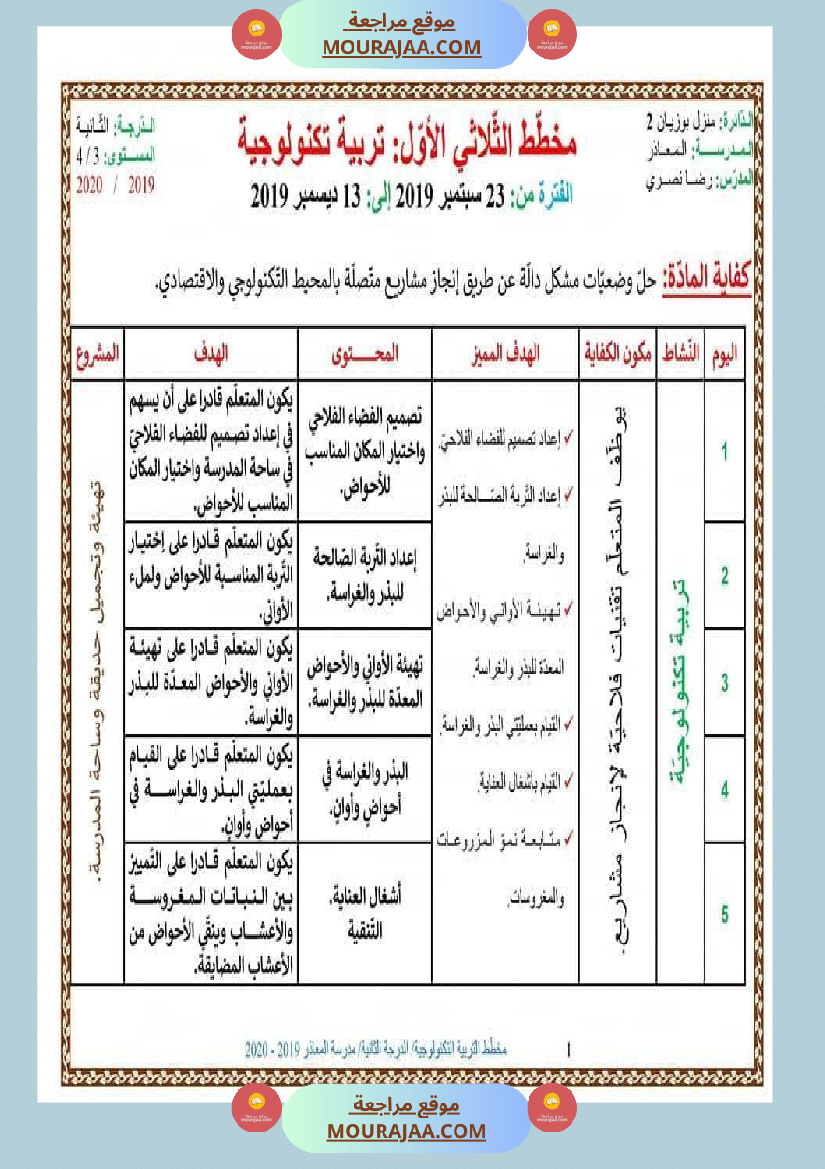 موقع مراجعة
MOURAJAA.COM
الدّائرة: منزل بوزيان 2
المدرســـة: المعاذر
المدرّس: رضا نصري
مخطّط الثّلاثي الأوّل: تربية تكنولوجية
الفترة من: 23 سبتمبر 2019 إلى: 13 ديسمبر 2019
الدّرجة: الثّانية
المستوى: 3 / 4
2019 / 2020
كفاية المادّة: حلّ وضعيّات مشكل دالّة عن طريق إنجاز مشاريع متّصلة بالمحيط التّكنولوجي والاقتصادي.
اليوم
النّشاط
مكون الكفاية
الهدف المميز
المحـــتوى
الهدف
المشروع
1
2
3
4
5
تربية تكنولوجيّة
يوظّف المتعلّم تقنيات فلاحيّة لإنجاز مشاريع.
✓ إعداد تصميم للفضاء الفلاحيّ.
✓ إعداد التّربة الصّالحة للبذر
والغراسة.
✓ تهيئة الأواني والأحواض
المعدّة للبذر والغراسة.
✓ القيام بعمليّتي البذر والغراسة.
✓ القيام بأشغال العناية.
✓ متابعة نموّ المزروعات
والمغروسات.
تصميم الفضاء الفلاحي
واختيار المكان المناسب
للأحواض.
يكون المتعلّم قادرا على أن يسهم
في إعداد تصميم للفضاء الفلاحيّ
في ساحة المدرسة واختيار المكان
المناسب للأحواض.
إعداد التّربة الصّالحة
للبذر والغراسة.
يكون المتعلّم قادرا على إختيار
التّربة المناسبة للأحواض ولملء
الأواني.
تهيئة الأواني والأحواض
المعدّة للبذر والغراسة.
يكون المتعلّم قادرا على تهيئة
الأواني والأحواض المعدّة للبذر
والغراسة.
البذر والغراسة في
أحواضٍ وأوانٍ.
يكون المتعلّم قادرا على القيام
بعمليّتي البذر والغراسة في
أحواض وأوانٍ.
أشغال العناية.
التّنقية
يكون المتعلّم قادرا على التّمييز
بين النباتات المغروسة
والأعشاب وينقّي الأحواض من
الأعشاب المضايقة.
تهيئة وتجميل حديقة وساحة المدرسة.
1
مخطّط التّربية التّكنولوجية/ الدرجة الثّانية/ مدرسة المعاذر 2019 - 2020
موقع مراجعة
MOURAJAA.COM